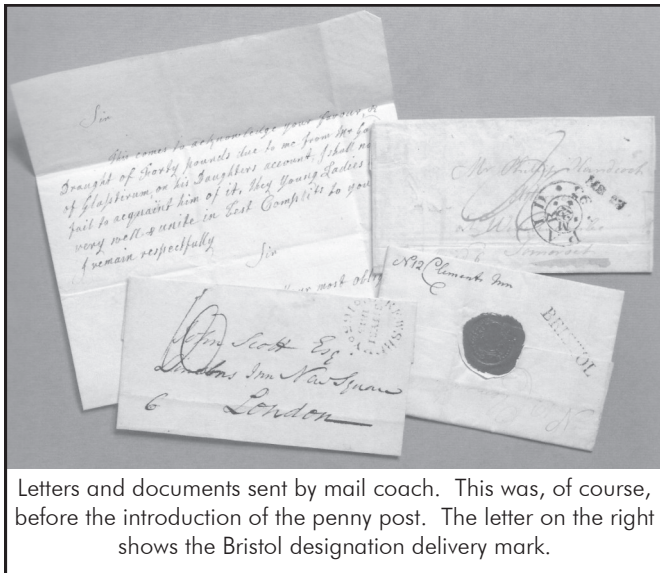 Sir
This comes to acknowledge your favour, &
Draught of Forty pounds due to me from the
of Glasstirum, on his Daughters account, I shall
fail to acquaint him of it, they Young Ladies
very well & unite in best Complits to you
I remain respectfully
Sir
most
Mr
Somerset
No 12 Clements Inn
BRISTOL
John Scott Esqr
Lincolns Inn New Square
6 London
Letters and documents sent by mail coach. This was, of course,
before the introduction of the penny post. The letter on the right
shows the Bristol designation delivery mark.